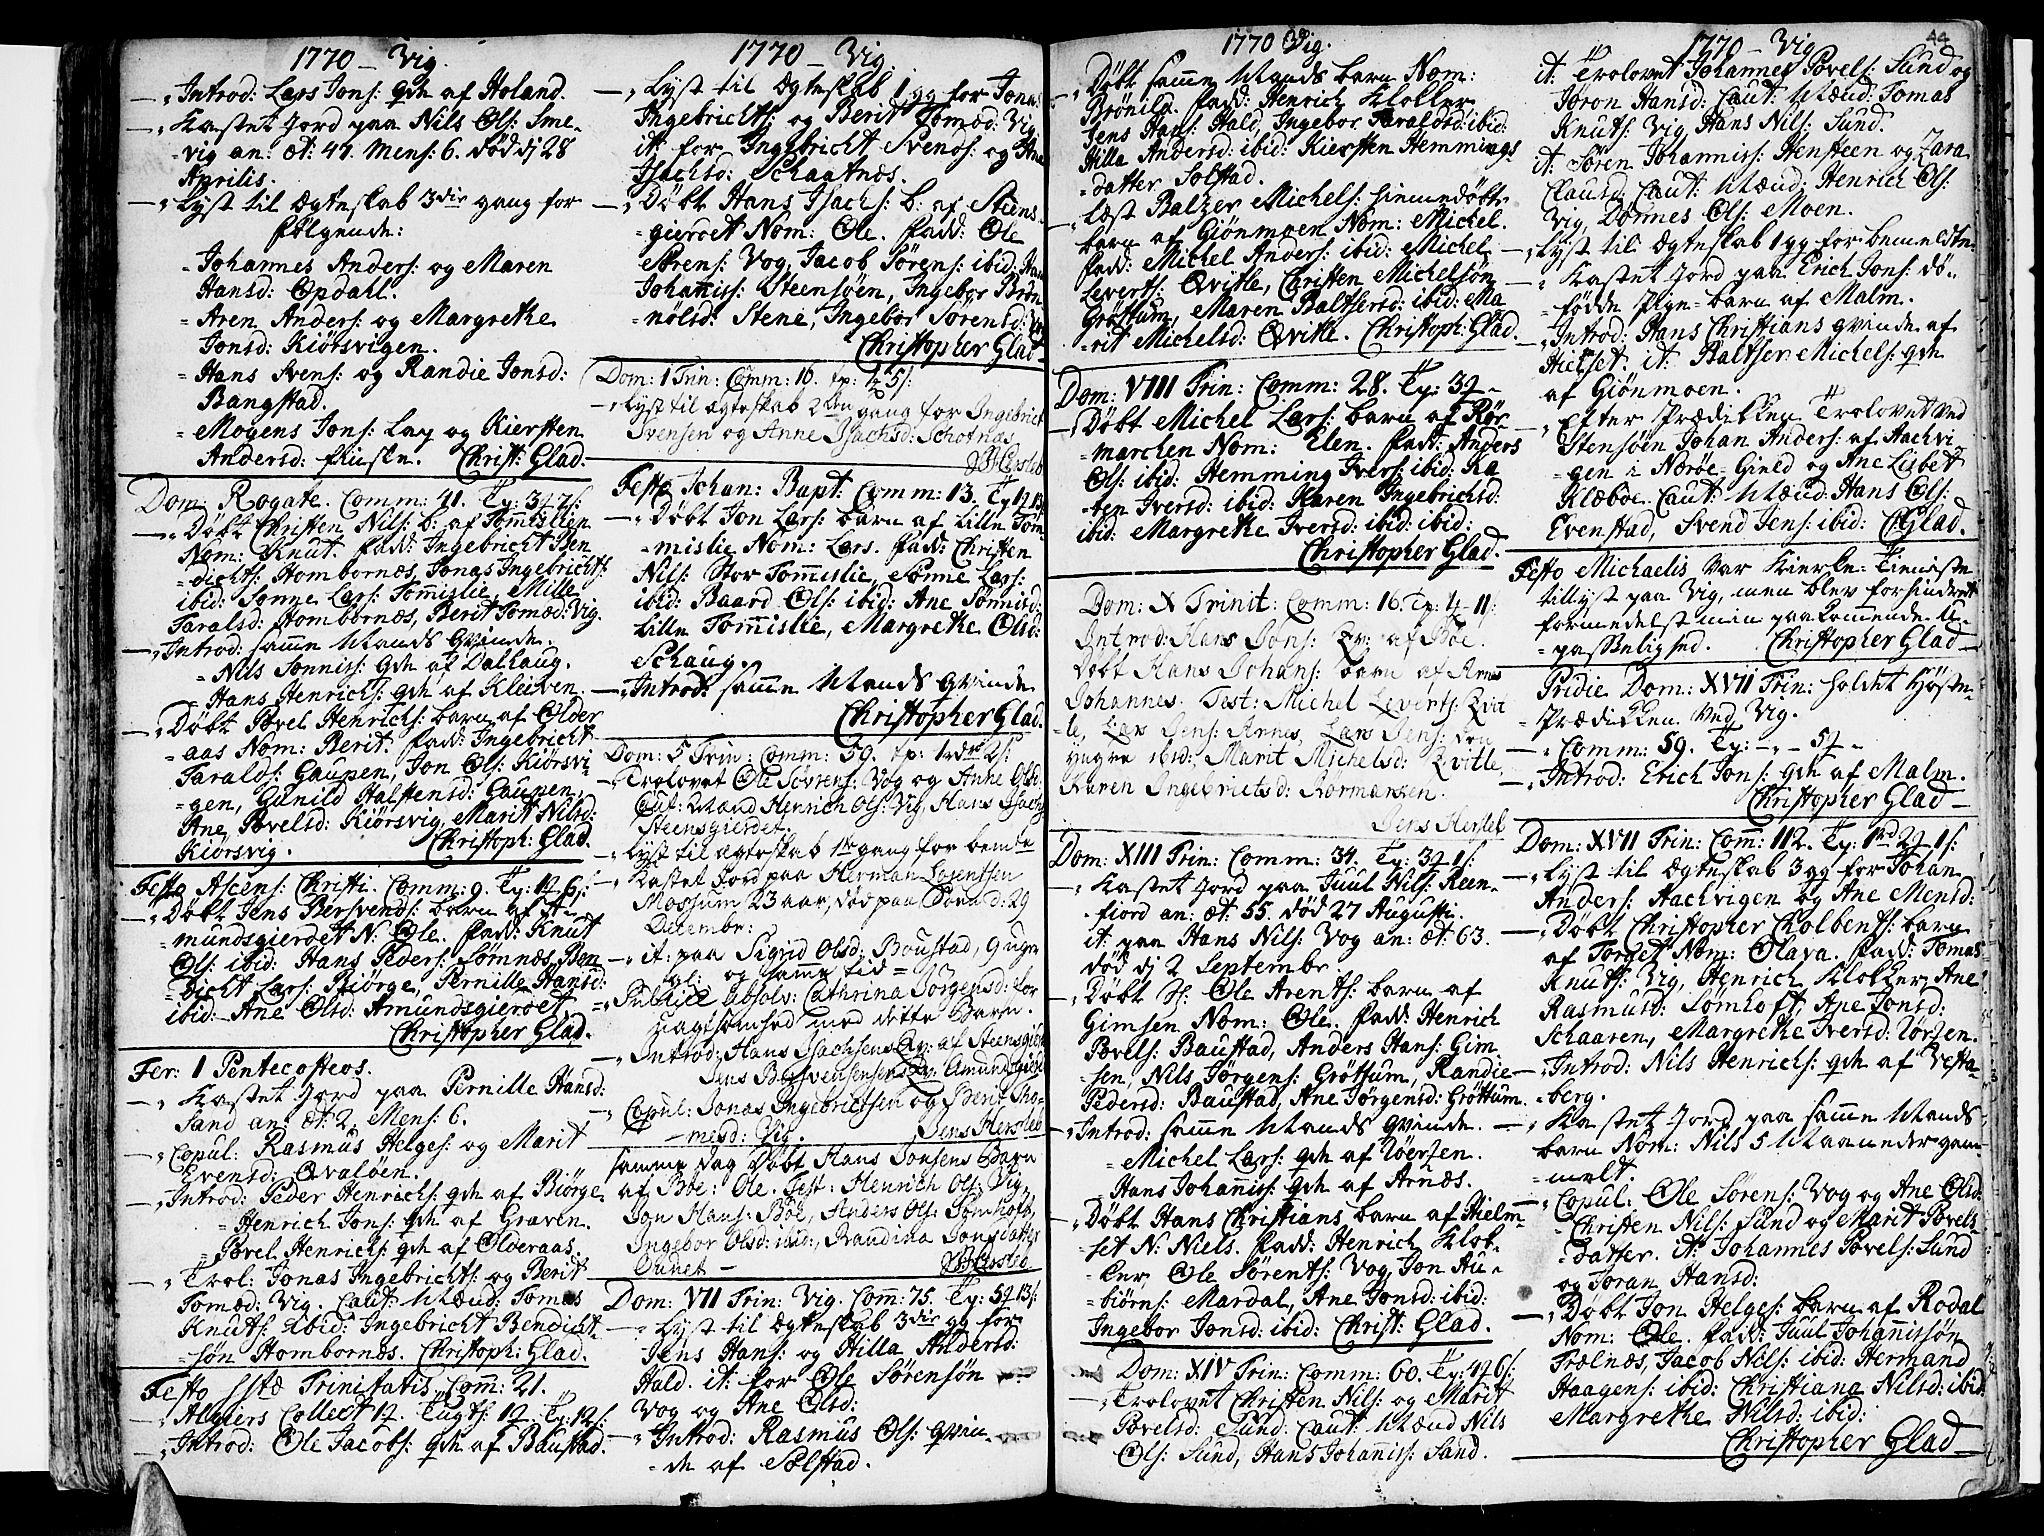 1770 - Vig.
Introd: Lars Jons: qde af Holand.
Kastet Jord paa Nils Ols: Sme-
vig an: æt: 41. Mens: 6. død dj 28
Aprilis.
Lyst til Ægteskab 3die gang for
følgende:
Johannes Anders: og Maren
Hansd: Opdahl.
Aren Anders: og Margrethe
Jonsd: Kiörsvigen.
Hans Svens: og Randie Jonsd:
Bangstad.
Mogens Jons: Lay og Kiersten
Andersd: fiuske. Christ: Glad.
Dom: Rogate. Comm: 41. Tp: 3 7 s:
Döbt Christen Nils: b: af Tomislien
Nom: Knut. fadd: Ingebricht Ben
dichts: Hombornæs, Jonas Ingebrichts:
ibid: Sonne Lars: Tomislie, Mille
Taralsd: Hombornæs, Berit Tomæd: Vig.
Introd: samme Mands Qvinde.
Nils Sonniss: qde af Dalhaug.
Hans Henrichs: qde af Kleiven.
Döbt Povel Henrichs: barn af Older
aas Nom: Berit. fadd: Ingebricht
Taralds: Gaupen, Jon Ols: Kiörsvi-
gen, Gunild Halstensd: Gaupen,
Ane Povelsd: Kiörsvig, Marit Nilsd:
Kiörsvig. Christoph: Glad.
Festo Ascens: Christi. Comm: 9. Tp: 12 6 s:
Döbt Jens Bersvends: barn af A-
mundsgierdet N: Ole. fadd: Knut
Ols: ibid: Hans Peders: Sömnæs, Ben
dicht Lars: Biörge, Pernille Hansd:
ibid: Ane Olsd: Amundsgierdet.
Christopher Glad.
Fer: 1 Pentecosteos.
Kastet Jord paa Pernille Hansd:
Sand an: æt: 2, Mens: 6.
Copul: Rasmus Helges: og Marit
Evensd: Qvalöen.
Introd: Peder Henrichs: qde af Biörge.
Henrich Jons: qde af Graven.
Povel Henrichs: qde af Olderaas.
Trol: Jonas Ingebrichts: og Berit
Tomæd: Vig. Caut: Mænd: Tomas
Knuts: ibid: Ingebricht Bendicht
sön Hombornæs. Christoph: Glad.
Festo SStæ Trinitatis. Com: 21.
Algiers Collect 12. Tugts: 12. Tp: 12 s:
Introd: Ole Jacobs: qde af Baustad.
1770 - Vig.
Lyst til Ægteskab 1 gg for Jonas
Ingebrichts: og Berit Tomæd: Vig.
it: for Ingebricht Svends: og Ane
Isachsd: Schaatnæs.
Döbt Hans Isachs: b: af Steens
gierdet Nom: Ole. fadd: Ole
Sörens: Vog, Jacob Sörens: ibid: Hans
Johaniss: Steensöen, Ingebor Brön
nölsd: Stene, Ingebor Sörensd: Vog
Christopher Glad
Dom: 1 Trin: Comm: 16. tp: 4 5 s:
Lyst til ægteskab 2den gang for Ingebrict
Svensen og Anne Isachsd: Schotnæs
JHersleb
Festo Johan: Bapt: Comm: 13. Tp: 12 13
Döbt Jon Lars: barn af Lille Tom
mislie Nom: Lars. fadd: Christen
Nils: Stor Tommislie, Sonne Lars:
ibid: Baard Ols: ibid: Ane Sonnisd:
Lille Tommislie, Margrethe Olsd:
Schaug.
Introd: samme Mands Qvinde
Christopher Glad.
Dom: 5 Trin: Comm: 59. tp: 1rdr 2 s:
Trolovet Ole Sövrens: Vog og Anne Olsd:
Caut: Mænd Henrich Ols: Vig, Hans Isachs
Steensgierdet.
Lyst til ægteskab 1te gang for bemte
Kastet Jord paa Herman Lorentsen
Mossum 23 aar, død paa Soen d: 29
Decembr:
it: paa Sigrid Olsd: Baustad, 9 uger
gl: og samme tid
Publice absolv: Cathrina Jörgensd: for
uagtsomhed med dette Barn.
Introd: Hans Isachsens Qv: af Steensgierdet
Jens Bersvensens Qv: Amundsgierdet
Copul: Jonas Ingebrictsen og Berit Tho-
mesd: Vig. Jens Hersleb
samme dag Döbt Hans Jonsens Barn
af Böe: Ole. Test: Henrich Ols: Vig,
Jon Hans: Böe, Anders Ols: Somhoft,
Ingebor Olsd: ibid:, Randina Jonsdatter
Ounet - JHersleb
Dom: VII Trin: Vig. Com: 75. Tp: 52 13 s:
Lyst til Ægteskab 3die gg for
Jens Hans: og Hilla Andersd:
Hald. it: for Ole Sörensön
Vog og Ane Olsd:
Introd: Rasmus Ols: qvin-
de af Solstad.
1770 Vig.
Döbt samme Mands barn Nom:
Brönild. fadd: Henrich Klokker,
Jens Hans: Hald, Ingebor Taraldsd: ibid:
Hilla Andersd: ibid: Kiersten Hemmings
datter Solstad.
Læst Balzer Michels: hiemmedöbte
barn af Giönmoen Nom: Michel.
fadd: Michel Anders: ibid: Michel
Leverts: Qvitle, Christen Michelsön
Gröttum, Maren Baltsersd: ibid: Ma
rit Michelsd: Qvitle. Christoph: Glad.
Dom: VIII Trin: Comm: 28. Tp: 32
Döbt Michel Lars: barn af Rör
marchen Nom: Elen. fadd: Anders
Ols: ibid: Hemming Ivers: ibid: Ka
ren Iversd: ibid: Karen Ingebrichsd:
ibid: Margrethe Iversd: ibid: ibid:
Christopher Glad.
Dom: X Trinit: Comm: 16. tp: 4 11 s:
Introd: Hans Jons: Qv: af Böe.
Döbt Hans Johans: barn af Arnes
Johannes. Test: Michel Leverts: Qvit
le, Lars Jens: Arnes, Lars Jens: den
yngre ibid: Marit Michelsd: Qvitle,
Karen Ingebrictsd: Rörmarken.
Jens Hersleb
Dom: XIII Trin: Comm: 34. Tp: 32 1 s:
Kastet Jord paa Juul Nils: Reen
fiord an: æt: 55. død 27 Augusti.
it: paa Hans Nils: Vog an: æt: 63.
död dj 2 Septembr.
Döbt S: Ole Arents: barn af
Gimsen Nom: Ole. fadd: Henrich
Povels: Baustad, Anders Hans: Gim-
sen, Nils Jörgens: Gröttum, Randie
Pedersd: Baustad, Ane Jörgensd: Gröttum
Introd: samme Mands Qvinde.
Michel Lars: qde af Uoersen.
Hans Johaniss: qde af Arnæs.
Döbt Hans Christians barn af Hielm
set N: Niels. fadd: Henrich Klok-
ker, Ole Sörents: Vog, Jon Au-
biörns: Mardal, Ane Jonsd: ibid:
Ingebor Jonsd: ibid: Christ: Glad.
Dom: XIV Trin: Comm: 60. Tp: 42 6 s:
Trolovet Christen Nils: og Marit
Povelsd: Sund. Caut: Mænd Nils
Ols: Sund, Hans Johaniss: Sand.
44
1770 - Vig
it: Trolovet Johannes Povels: Sund og
Joron Hansd: Caut: Mænd: Tomas
Knuts: Vig, Hans Nils: Sund.
it: Sören Johanniss: Hensteen og Zara
Clausd. Caut: Mænd: Henrich Ols:
Vig, Donnes Ols: Moen.
Lyst til Ægteskab 1 gg for bemeldte.
Kastet Jord paa Erich Jons: dö-
födde Pige-barn af Malm.
Introd: Hans Christians qvinde af
Hielset. it: Baltser Michels: qde
af Giönmoen.
Efter Prædikken Trolovet ved
Stensöen Johan Anders: af Aachvi-
gen i Nærøe-Gield og Ane Lisbet
Klæboe. Caut: Mænd: Hans Ols:
Evenstad, Svend Jens: ibid: C: Glad.
Festo Michaelis var Kierke-Tieneste
tillyst paa Vig, men blev forhindret
formedelst min paakommende U-
pasßelighed. Christopher Glad
Pridie Dom: XVII Trin: holdet Höste-
Prædikken ved Vig.
Comm: 59. Tp: - 52 -
Introd: Erich Jons: qde af Malm.
Christopher Glad
Dom: XVII Trin: Com: 112. Tp: 1rd 22 1 s:
Lyst til Ægteskab 3 gg for Johan
Anders: Aachvigen og Ane Mensd:
Döbt Christopher Cholbents: barn
af Torget Nom: Olava. fadd: Tomas
Knuts: Vig, Henrich Klokker, Ane
Rasmusd: Somhoft, Ane Jonsd:
Schaaren, Margrethe Iversd: Uorsen.
Introd: Nils Henrichs: qde af Vesta-
berg.
Kastet Jord paa samme Mands
barn Nom: Nils 5 Maaneder gam-
melt.
Copul: Ole Sörens: Vog og Ane Olsd:
Christen Nils: Sund og Marit Povels
datter. it: Johannes Povels: Sund
og Joran Hansd:
Döbt Jon Helges: barn af Rodal
Nom: Ole. fadd: Juul Johanissön
Trælnæs, Jacob Nils: ibid: Hermand
Haagens: ibid: Christiana Nilsd: ibid:
Margrethe Nilsd: ibid:
Christopher Glad